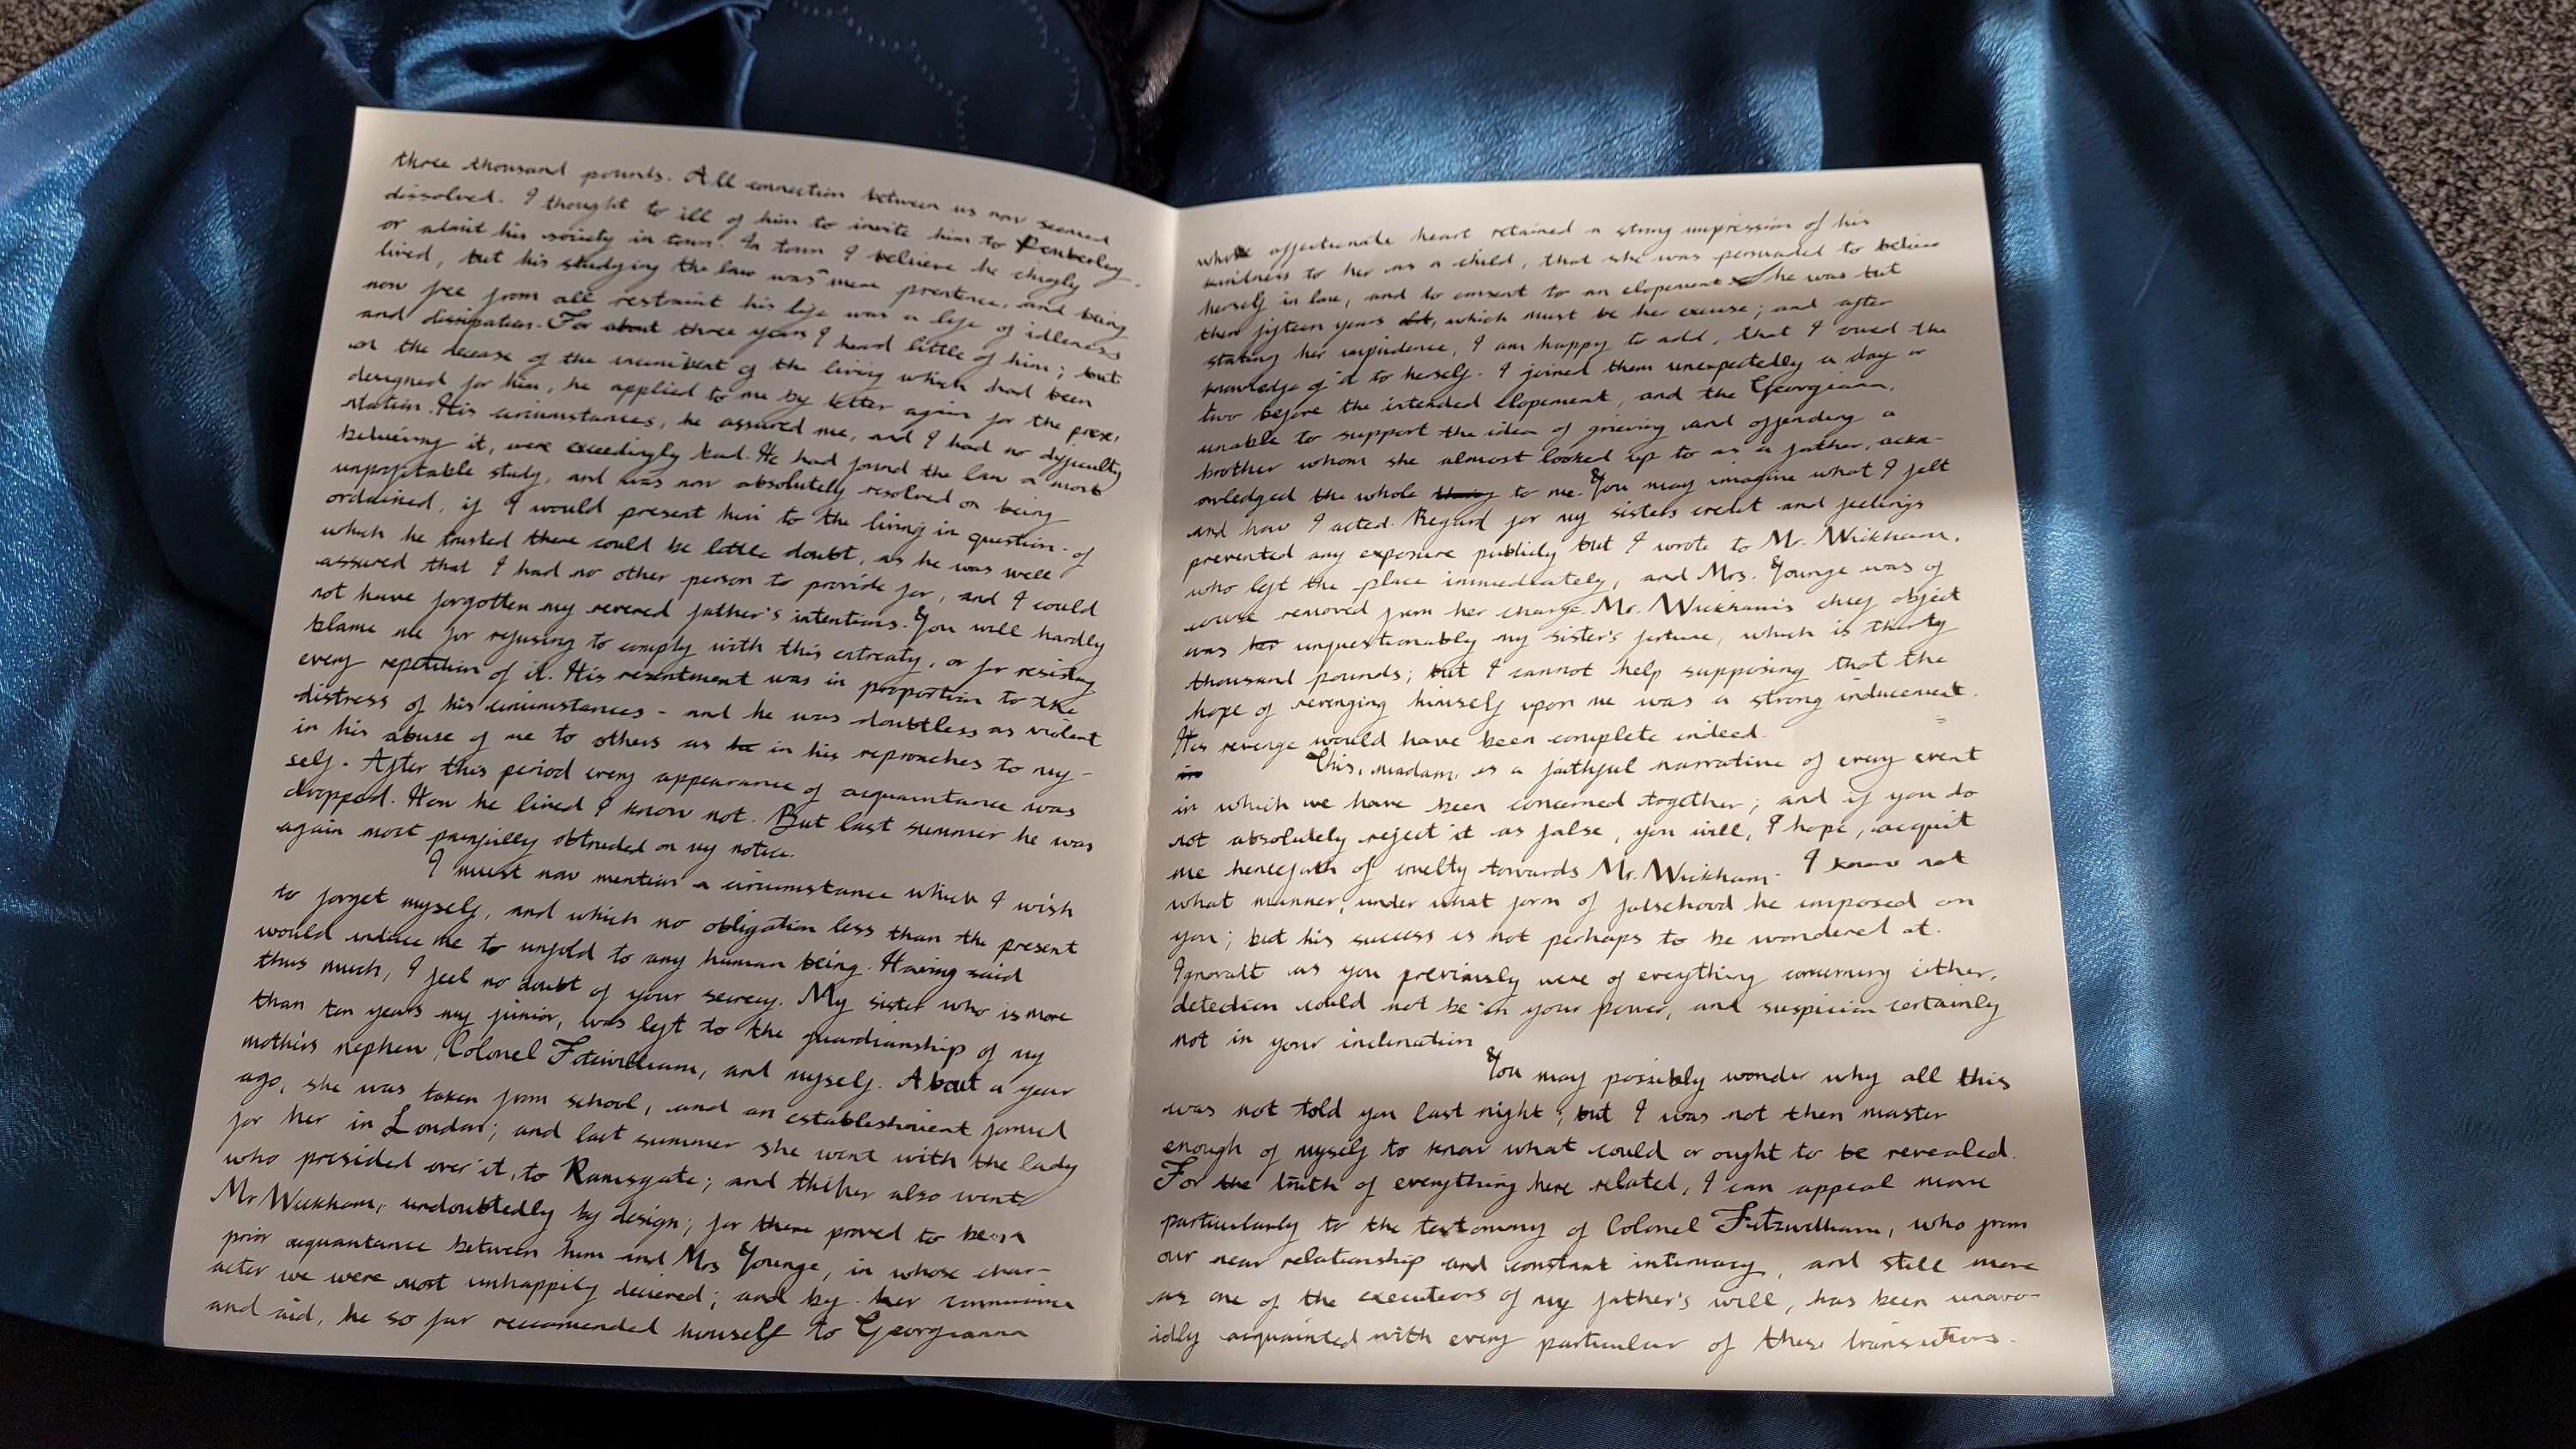 three thousand pounds. All connection between us now seemed
dissolved. I thought to ill of him to invite him to Pemberley
or admit his society in town. In town I believe he chiefly
lived, but his studying the law was mere pretence, and being
now free from all restraint his life was a life of idleness
and dissipation. For about three years I heard little of him; but
on the decease of the incumbent of the living which had been
designed for him, he applied to me by letter again for the presen
tation. His circumstances, he assured me, and I had no difficulty
believing it, were exceedingly bad. He had found the law a most
unprofitable study, and was now absolutely resolved on being
ordained, if I would present him to the living in question - of
which he trusted there could be little doubt, as he was well
assured that I had no other person to provide for, and I could
not have forgotten my revered father's intentions. You will hardly
blame me for refusing to comply with this entreaty, or for resisting
every repetition of it. His resentment was in proportion to the
distress of his circumstances - and he was doubtless as violent
in his abuse of me to others as in his reproaches to my-
self. After this period every appearance of acquaintance was
dropped. How he lived I know not. But last summer he was
again most painfully obtruded on my notice.
I must now mention a circumstance which I wish
to forget myself, and which no obligation less than the present
would induce me to unfold to any human being. Having said
thus much, I feel no doubt of your secrecy. My sister who is more
than ten years my junior, was left to the guardianship of my
mother's nephew, Colonel Fitzwilliam, and myself. About a year
ago, she was taken from school, and an establishment formed
for her in London; and last summer she went with the lady
who presided over it, to Ramsgate; and thither also went
Mr Wickham, undoubtedly by design; for there proved to been
prior acquantance between him and Mrs Younge, in whose char-
acter we were most unhappily decieved; and by her connivance
and aid, he so far reccomended himself to Georgianna
whose affectionate heart retained a strong impression of his
kindness to her as a child, that she was persuaded to believe
herself in love, and to consent to an elopement. She was but
then fifteen years old, which must be her excuse; and after
stating her impudence, I am happy to add, that I owed the
knowledge of it to herself. I joined them unexpectedly a day or
two before the intended elopement, and the Georgiana,
unable to support the idea of grieving and offending a
brother whom she almost looked up to as a father, ackn-
owledged the whole to me. You may imagine what I felt
and how I acted. Regard for my sisters credit and feelings
prevented any exposure publicly but I wrote to Mr. Wickham,
who left the place immediately, and Mrs. Younge was of
course removed from her charge. Mr. Wickham's chief object
was unquestionably my sister's fortune, which is thirty
thousand pounds; but I cannot help supposing that the
hope of revenging himself upon me was a strong inducement.
His revenge would have been complete indeed.
This, madam, is a faithful narrative of every event
in which we have been concerned together; and if you do
not absolutely reject it as false, you will, I hope, acquit
me henceforth of cruelty towards Mr. Wickham. I know not
what manner, under what form of falsehood he imposed on
you; but his success is not perhaps to be wondered at.
Ignorant as you previously were of everything concerning either,
detection could not be in your power, and suspicion certainly
not in your inclination
You may possibly wonder why all this
was not told you last night; but I was not then master
enough of myself to know what could or ought to be revealed.
For the truth of everything here related, I can appeal more
particularly to the testomony of Colonel Fitzwilliam, who from
our near relationship and constant intimacy, and still more
as one of the executors of my father's will, has been unavo-
idly acquainted with every particular of these transactions.